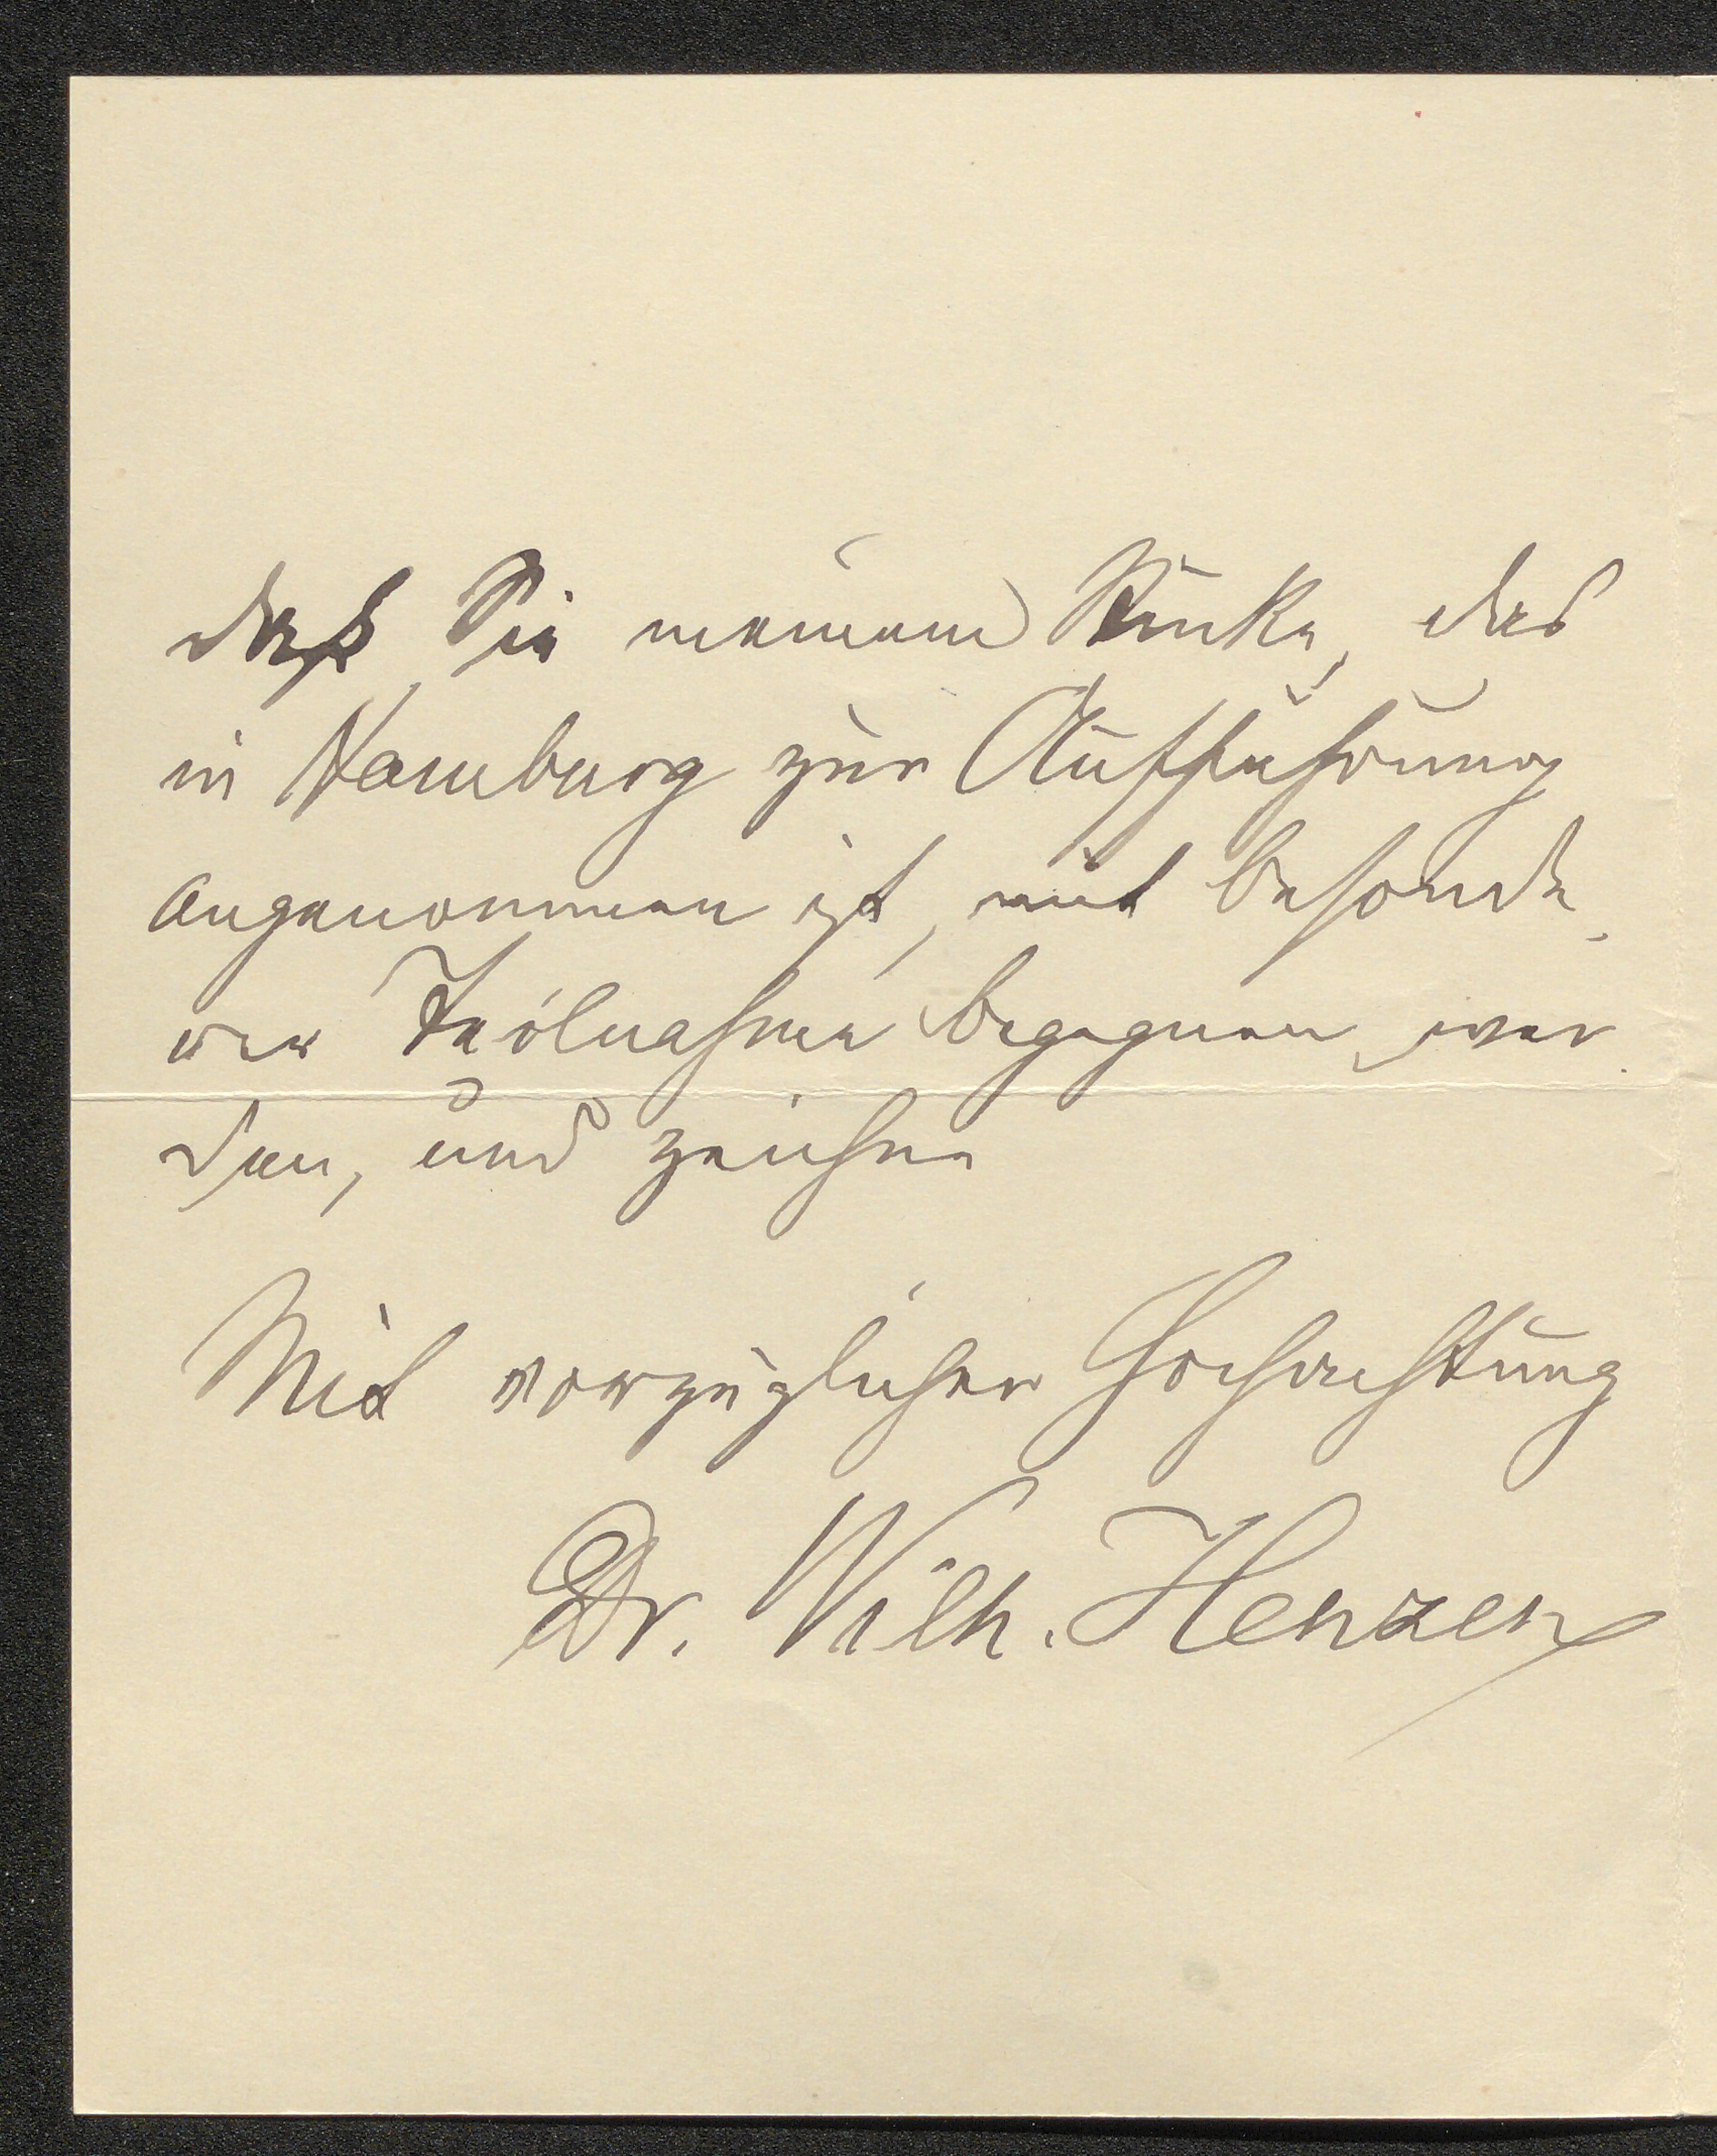 daß Sie meinem Stücke, das
in Hamburg zur Aufführung
angenommen ist, mit besonde-
rer Teilnahme begegnen wer-
den, und zeichne
Mit vorzüglicher Hochachtung
Dr. Wilh. Henzen